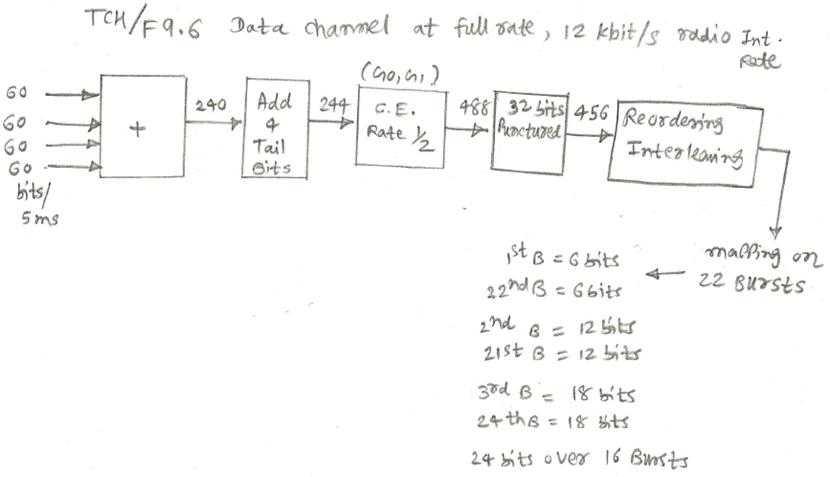 TCH/F9.6 Data channel at full rate, 12 kbit/s radio Int.
Rate
60
60
60
60
bits/
5ms
+
240
Add
4
Tail
Bits
244
(G0,G1)
C.E.
Rate 1/2
488
32 bits
Punctured
456
Reordering
Interleaving
mapping on
22 Bursts
1st B = 6 bits
22nd B = 6 bits
2nd B = 12 bits
21st B = 12 bits
3rd B = 18 bits
24th B = 18 bits
24 bits over 16 Bursts